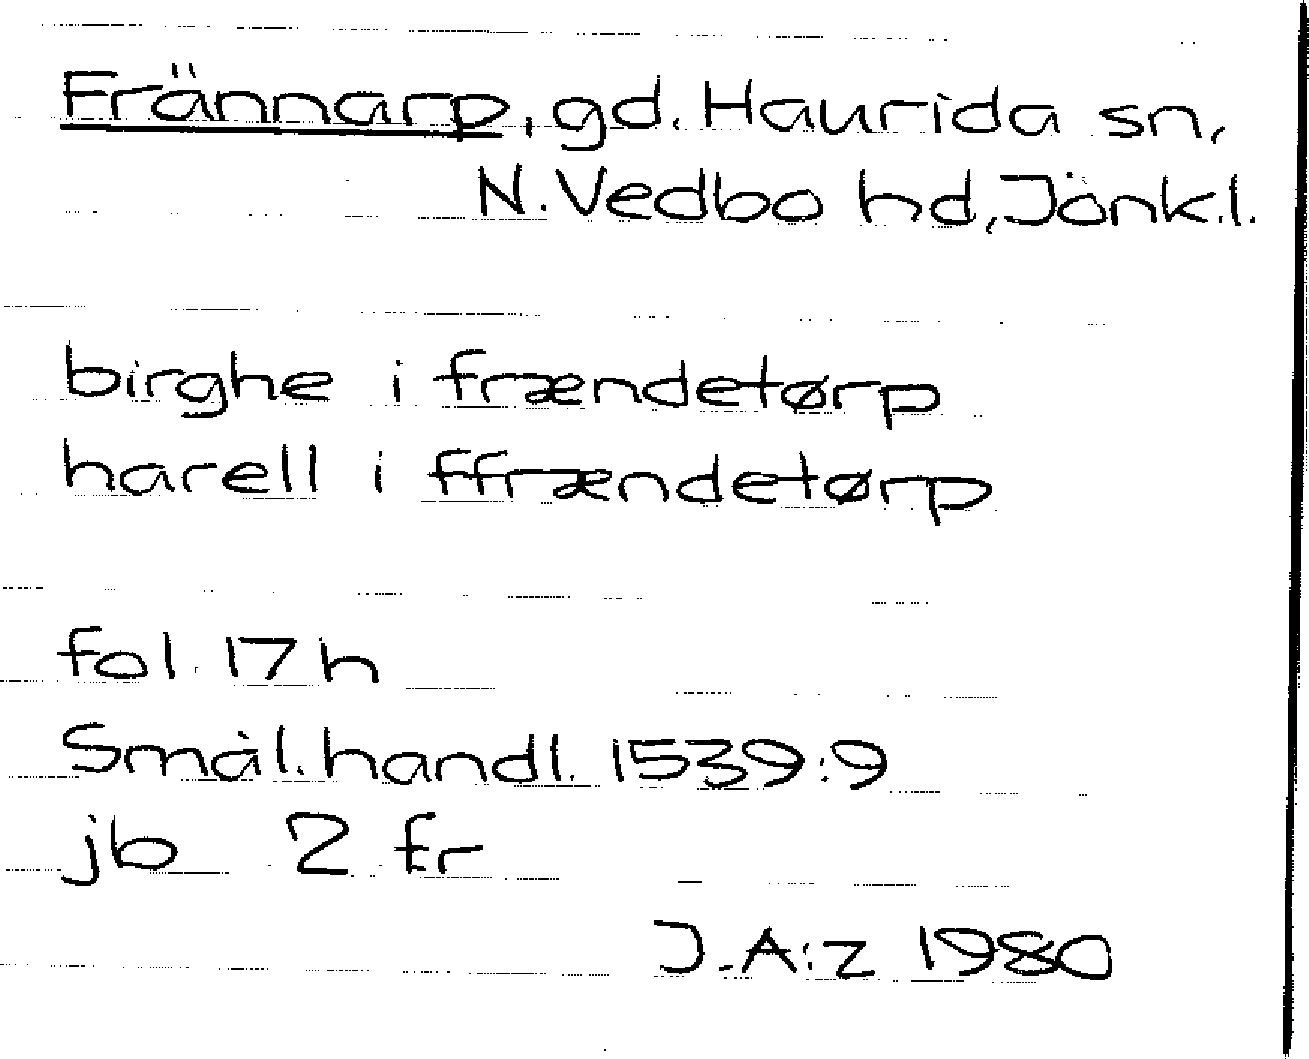 Frännarp, gd. Haurida sn,
N. Vedbo hd, Jönk.l.
birghe i frændetørp
harell i ffrændetørp
fol. 17 h
Smål. handl. 1539:9
jb 2 fr
J.A:z 1980